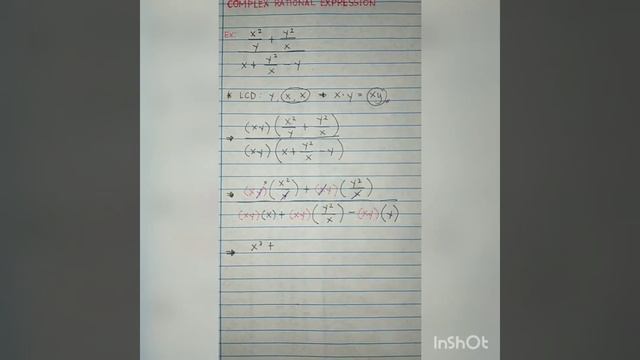 COMPLEX RATIONAL EXPRESSION
Ex: x²/y + y²/x
x + y²/x - y
* LCD: y, x, x → x·y = xy
⇒ (xy)(x²/y + y²/x)
(xy)(x + y²/x - y)
⇒ (xy)(x²/y) + (xy)(y²/x)
(xy)(x) + (xy)(y²/x) - (xy)(y)
⇒ x³ +
InShOt